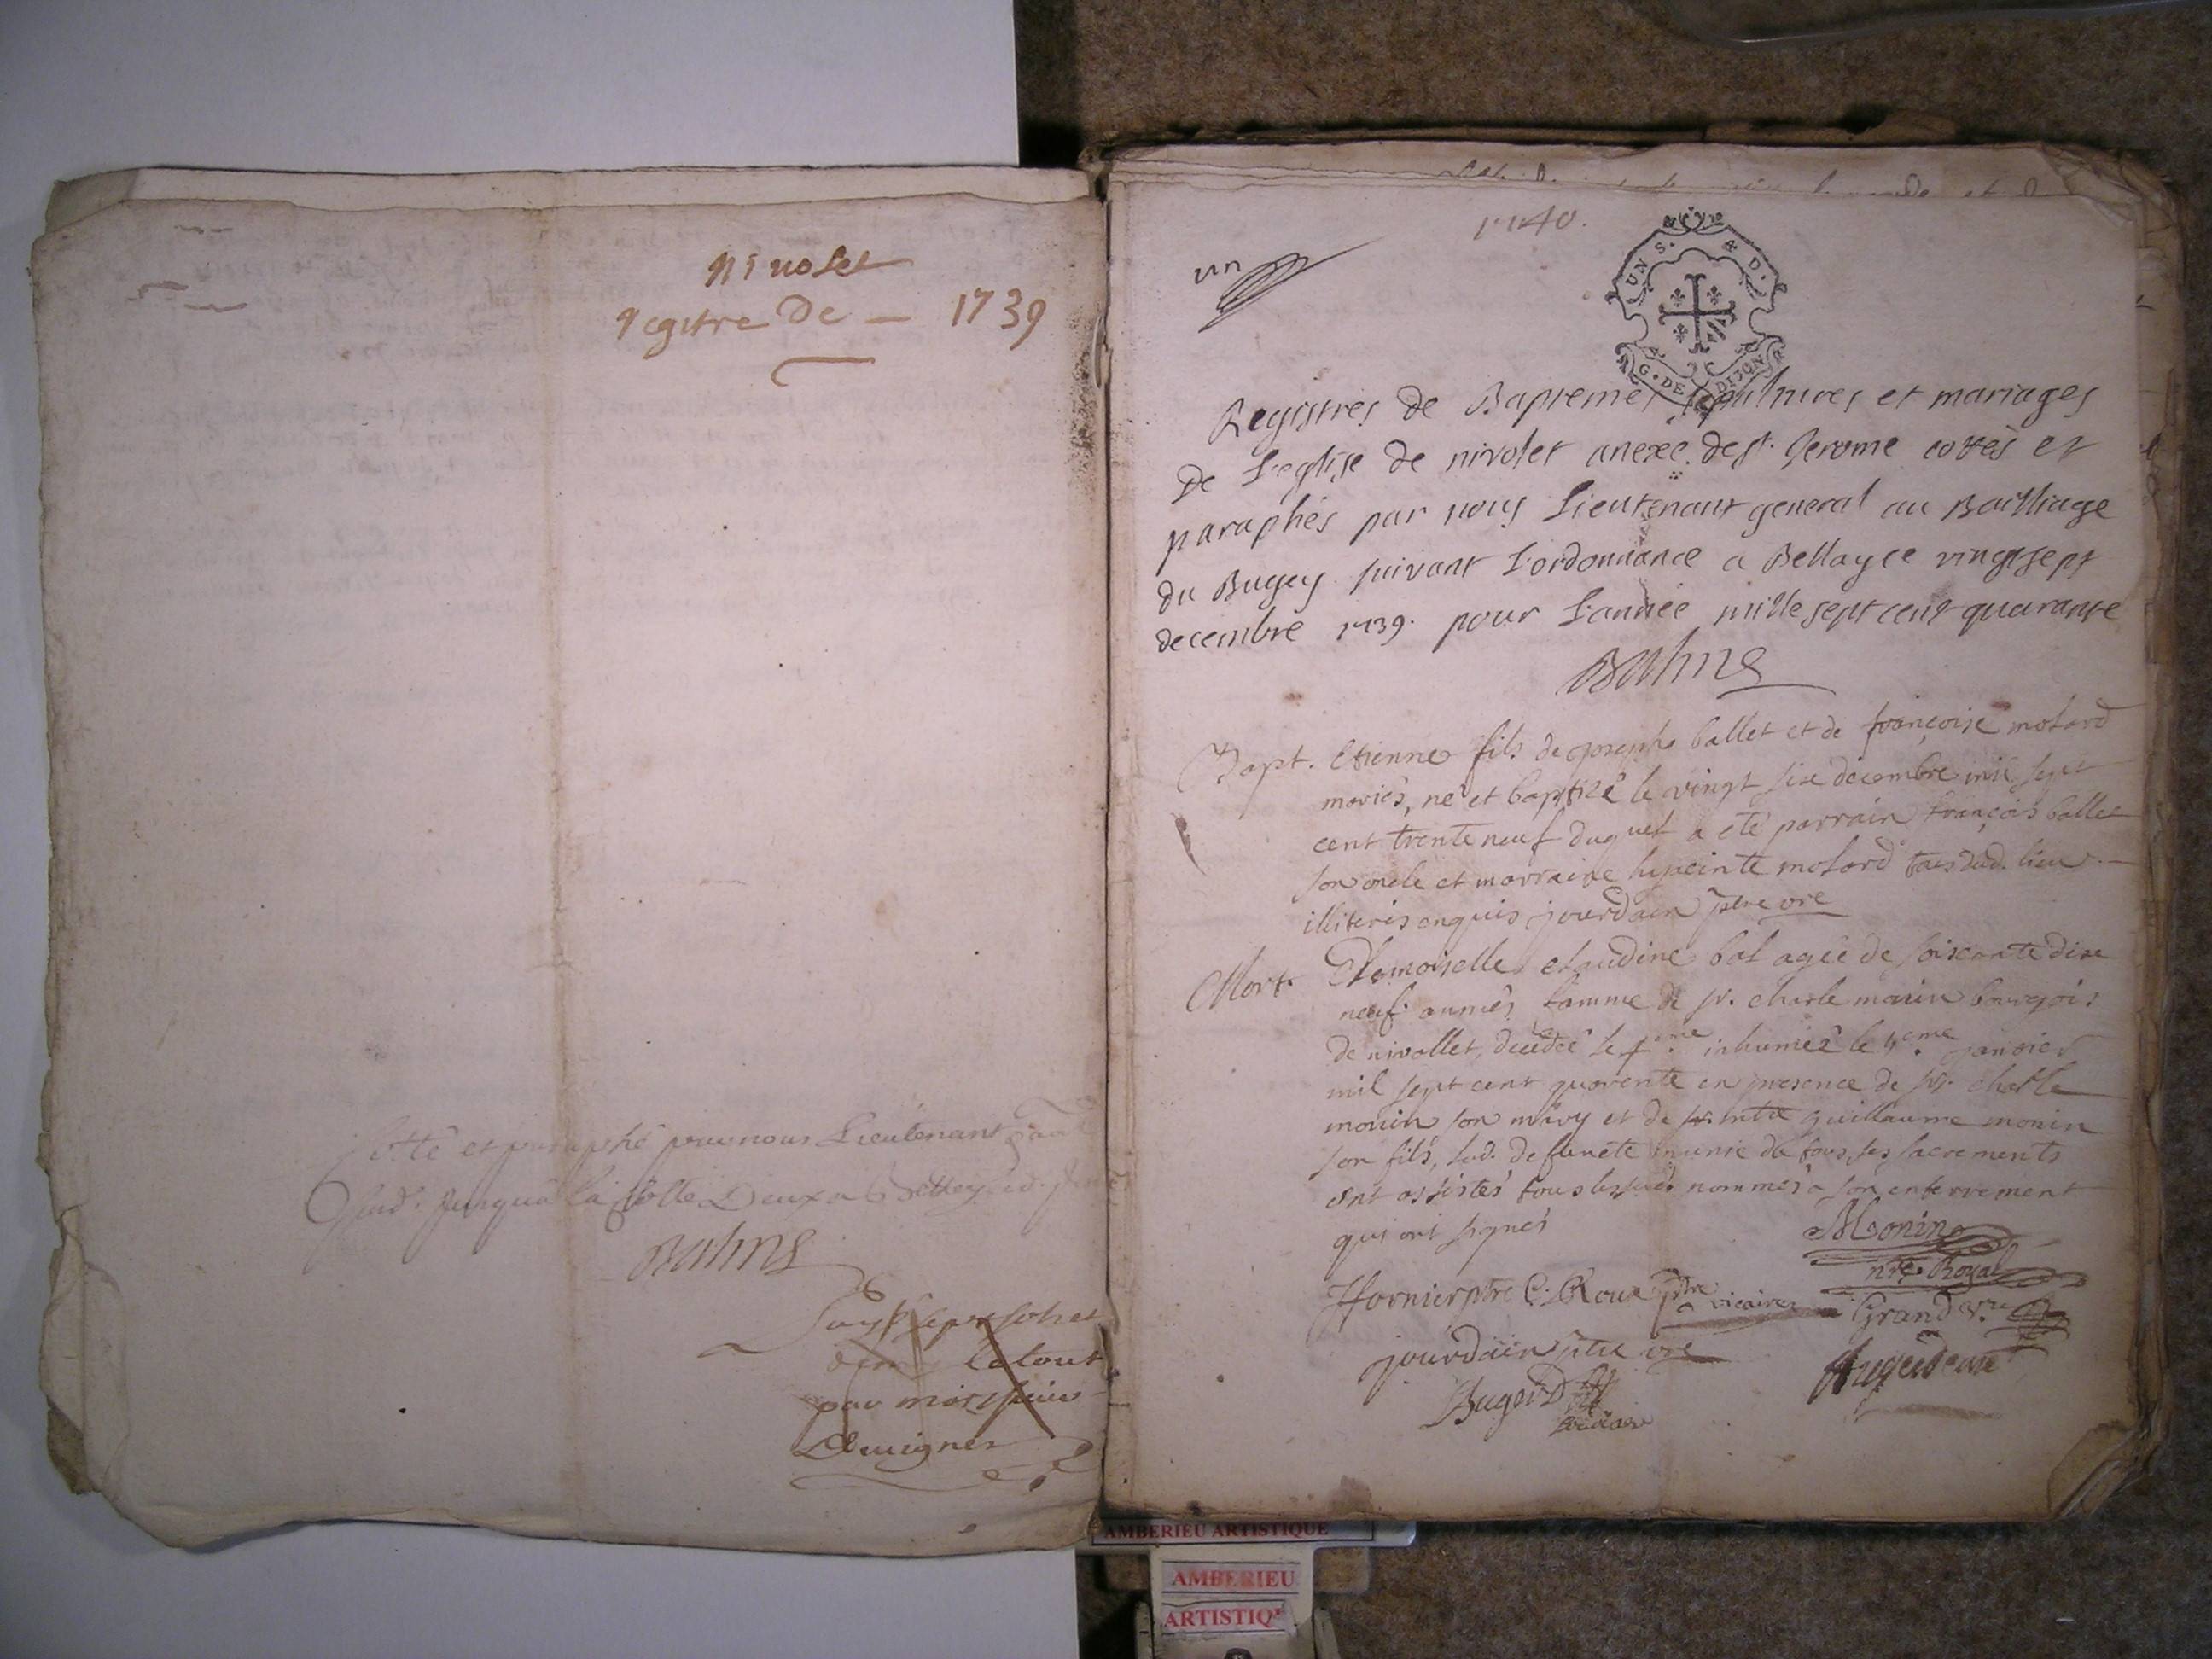 nivolet
regitre de — 1739
Cotté et paraphé par nous Lieutenant
jusqua la Cotte Deux a Belley
Balme
le tout
par
1740.
un
UN S. & D.
G. DE DIJON
Registres de Baptemes sepultures et mariages
de l'eglise de nivolet anexe de st. Jerome cottés et
paraphés par nous Lieutenant general au Bailliage
du Bugey suivant l'ordonnance a Bellay ce vingt sept
decembre 1739. pour l'année mille sept cent quarante
Balme
Bapt. Etienne fils de joseph ballet et de françoise motard
mariés, né et baptizé le vingt six decembre mil sept
cent trente neuf duquel a eté parrain françois ballet
son oncle et marraine hypcinte motard tous dud. lieu
illiterés enquis jourdain ptre vre
Mort. Demoiselle claudine bal agée de soiscante dix
neuf années famme de sr. charle monin bourgois
de nivollet, decedée le 4eme inhumée le 5eme janvier
mil sept cent quarente en presence de sr. charle
monin son mary et de mtre guillaume monin
son fils, lad. defunete munie de tous ses sacrements
ont assistés tous les nommés a son enterrement
qui ont signés
Monin
nre Royal
fornier ptre C. Roux ptre vicaire Grand vre
jourdain ptre vre
Buget
AMBERIEU ARTISTIQUE
AMBERIEU
ARTISTIQ